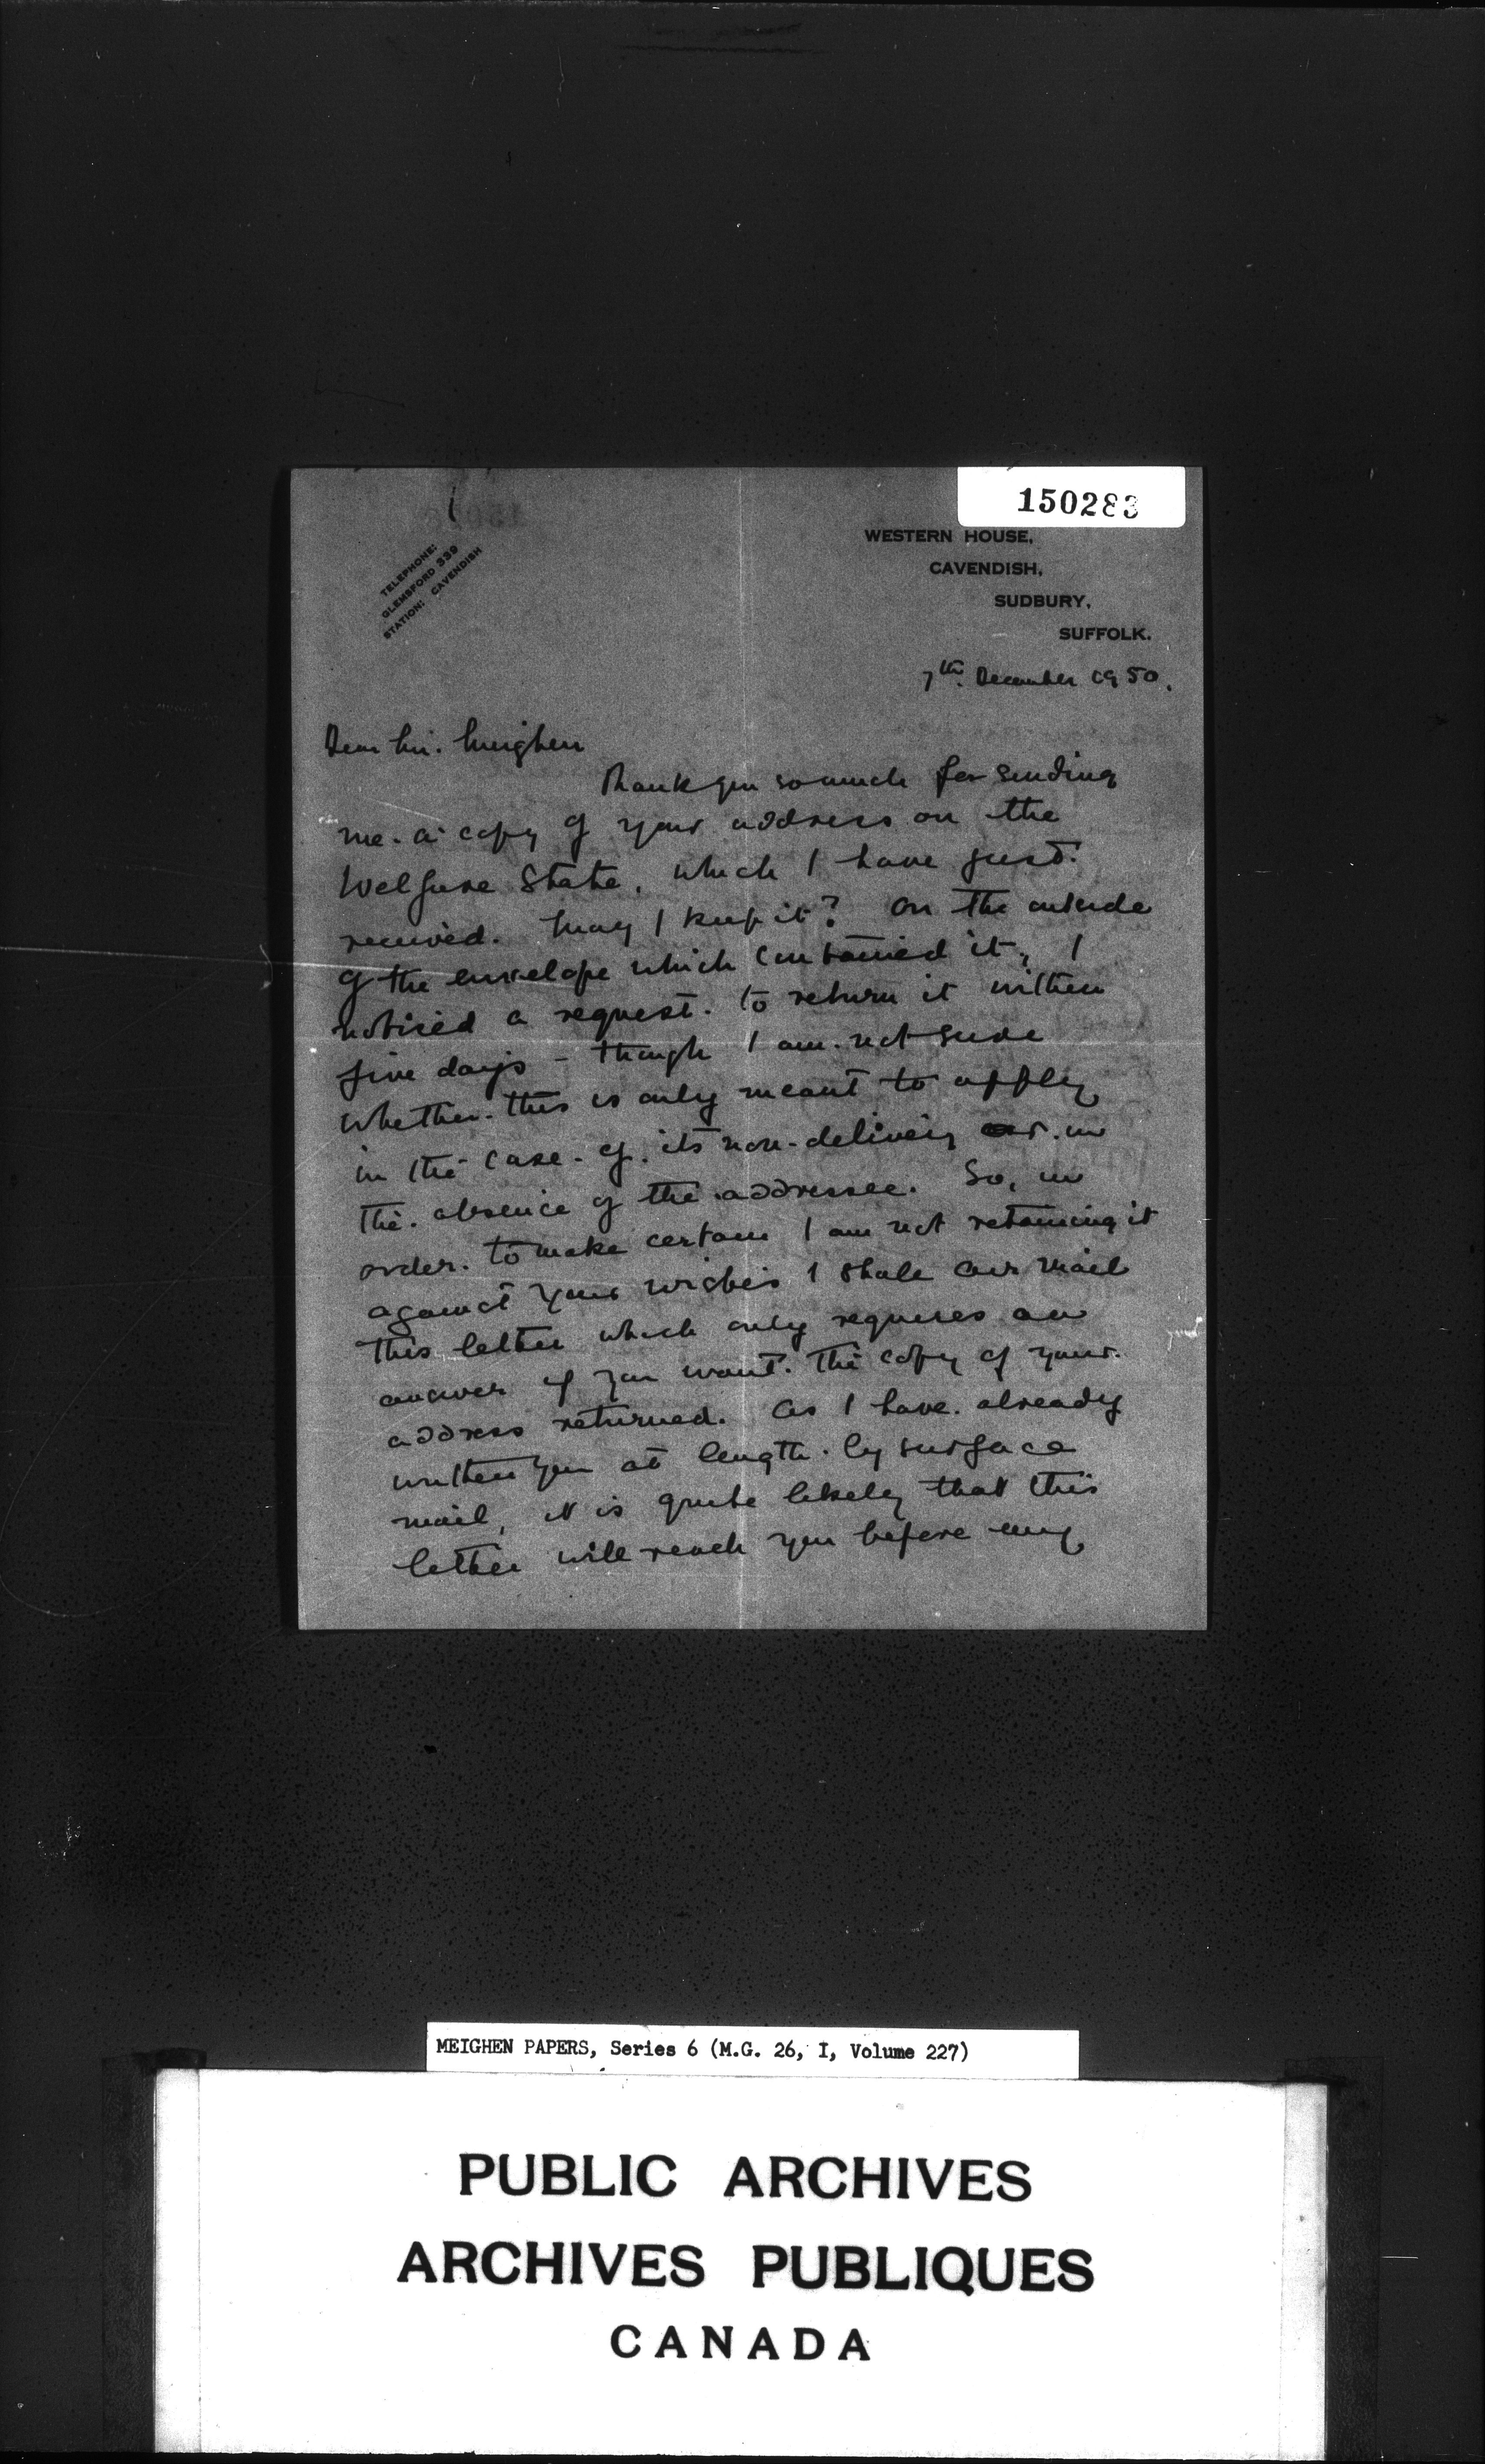 150283
TELEPHONE:
GLEMSFORD 339
STATION: CAVENDISH
WESTERN HOUSE,
CAVENDISH,
SUDBURY,
SUFFOLK.
7th. December 1950.
Dear Mr. Meighen
Thank you so much for sending
me a copy of your address on the
Welfare State, which I have just
received. May I keep it? On the outside
of the envelope which contained it, I
noticed a request to return it within
five days - though I am not sure
whether this is only meant to apply
in the case of its non-delivery or in
the absence of the addressee. So, in
order to make certain I am not retaining it
against your wishes I shall air mail
this letter which only requires an
answer if you want the copy of your
address returned. As I have already
written you at length by surface
mail, it is quite likely that this
letter will reach you before my
MEIGHEN PAPERS, Series 6 (M.G. 26, I, Volume 227)
PUBLIC ARCHIVES
ARCHIVES PUBLIQUES
CANADA